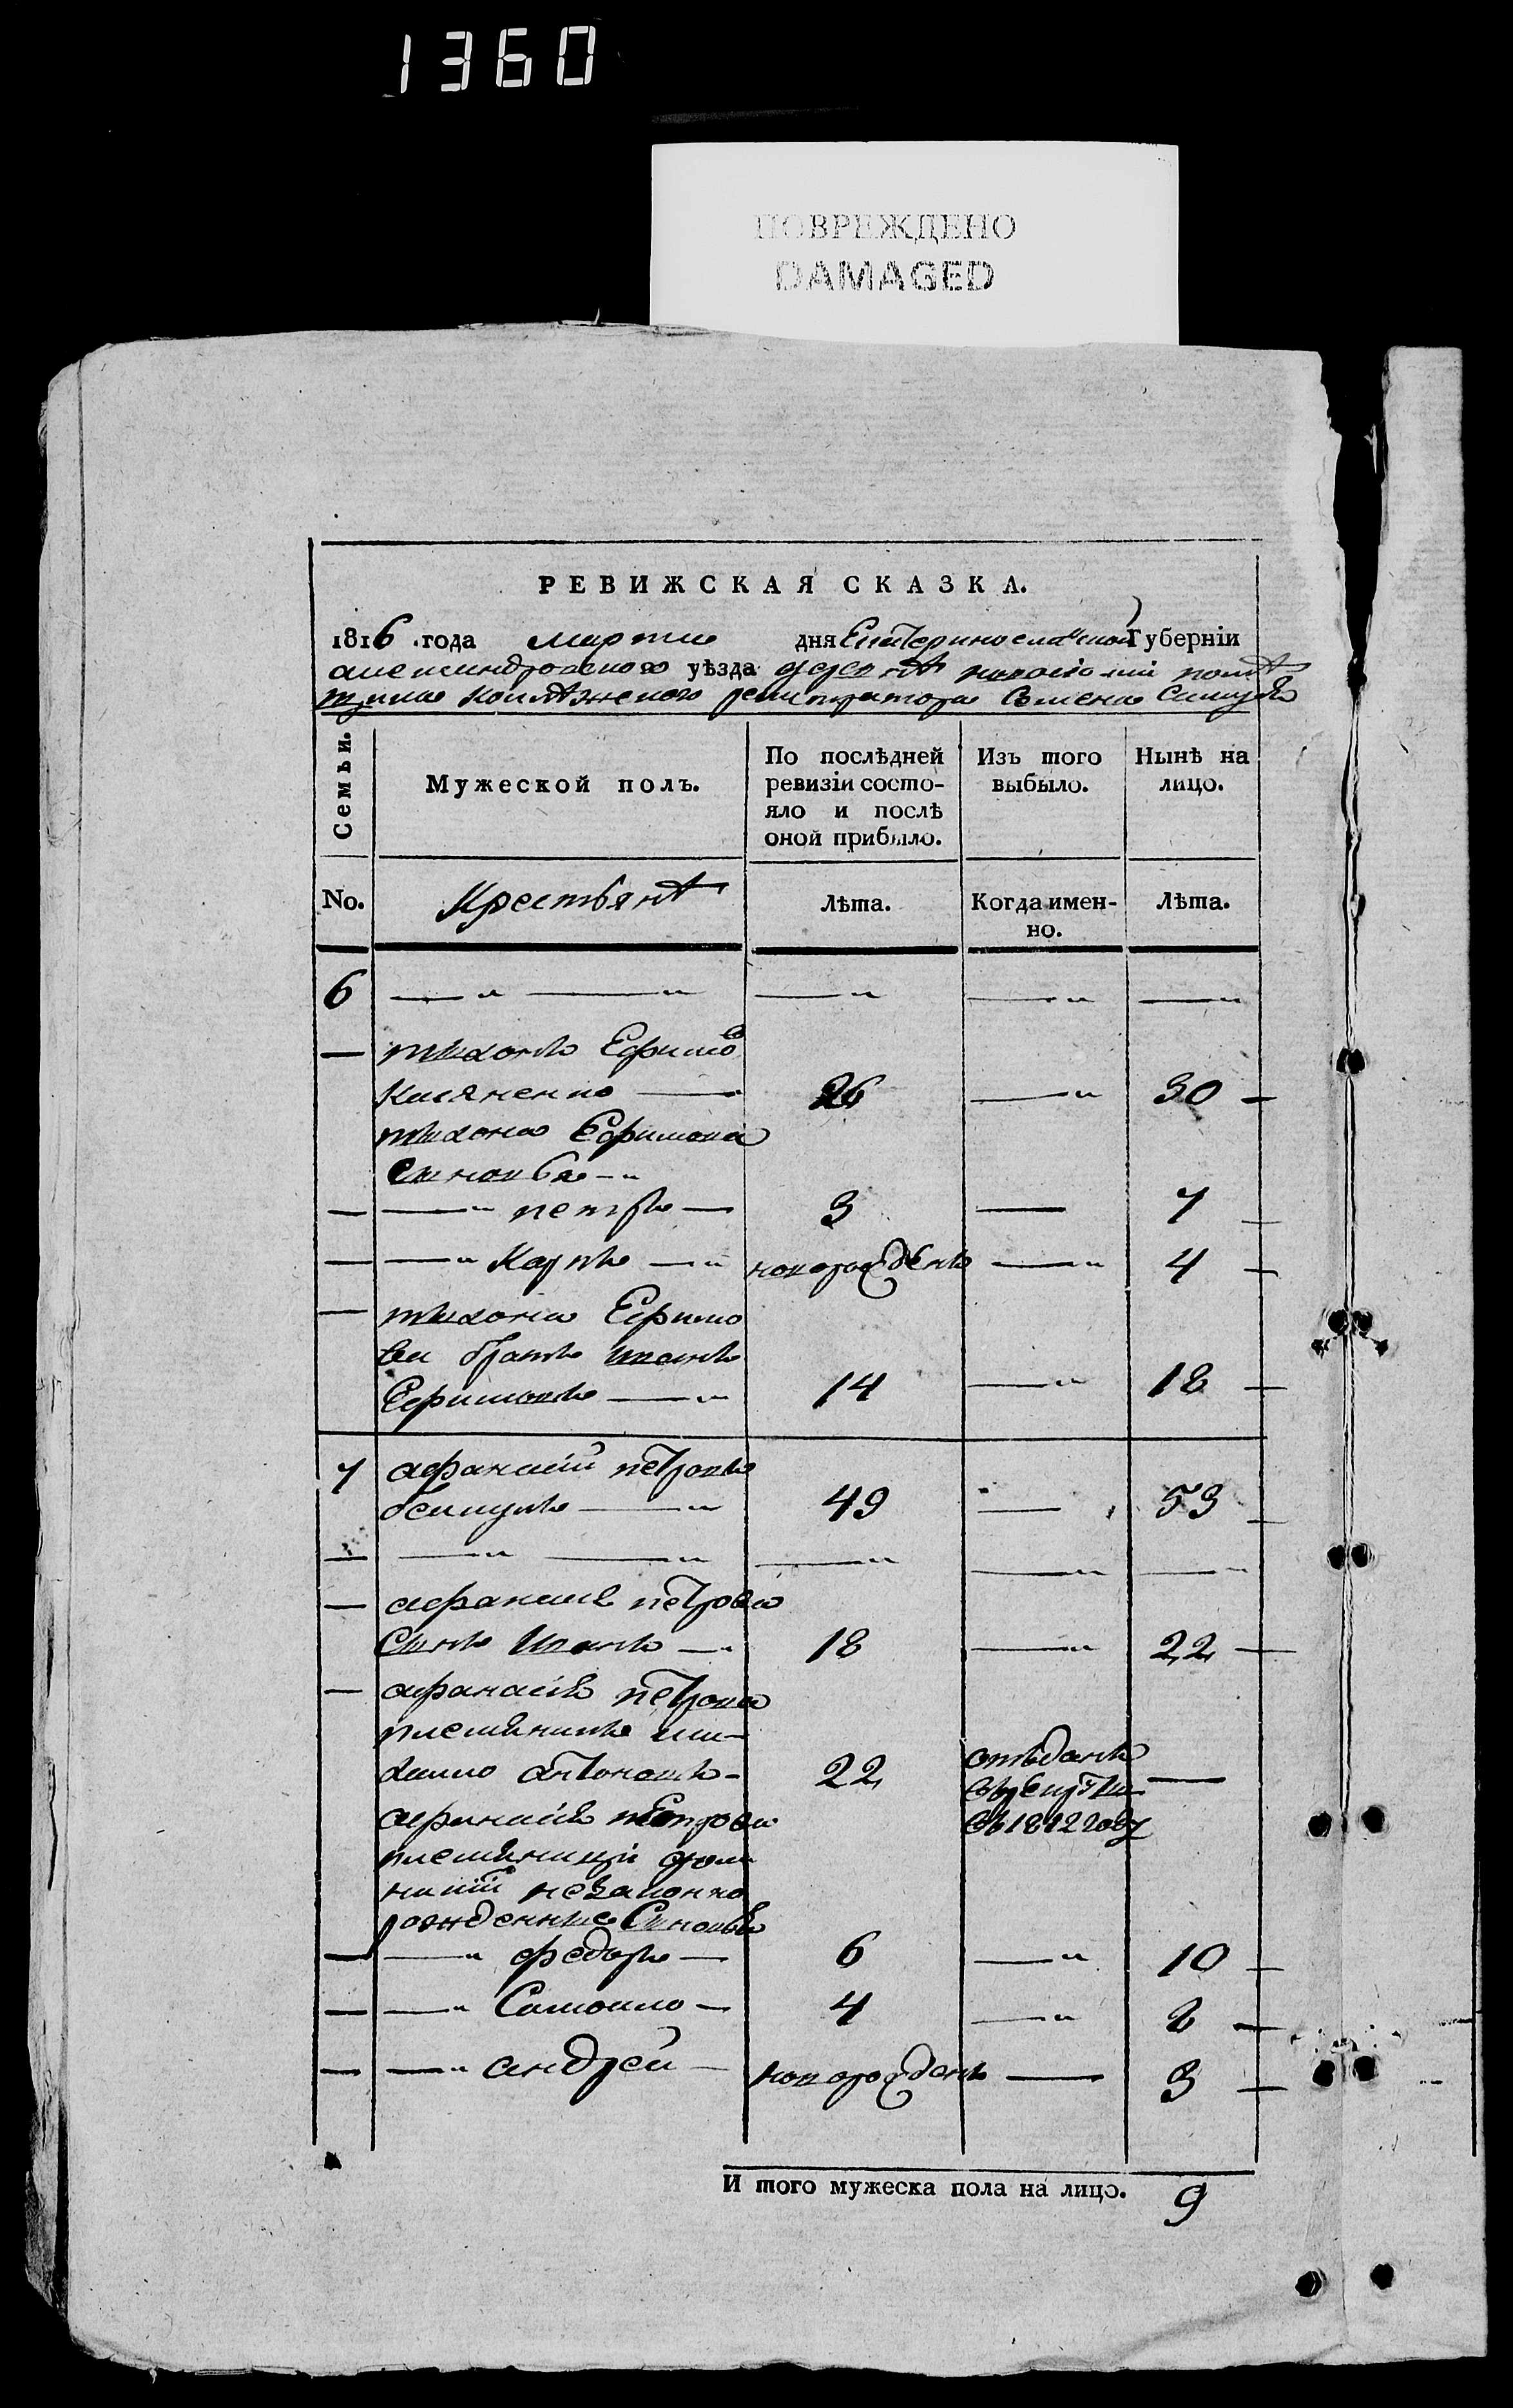 1360
ПОВРЕЖДЕНО
DAMAGED
РЕВИЖСКАЯ СКАЗКА.
1816 года марта дня Екатеринославской Губерніи
александровского уѣзда помѣ
щика колѣжского регистратора Семена
Семьи.
Мужеской полъ.
По послѣдней ревизіи состо-
яло и послѣ
оной прибыло.
Изъ того
выбыло.
Нынѣ на
лицо.
No.
Крестьянѣ
Лѣта.
Когда имен-
но.
Лѣта.
6
тихонъ Ефимов
Касяненко 26 30
тихона Ефимова
Сыновья
петръ 3 7
Карпъ новорожденъ 4
тихона Ефимо
ва братъ Игнатъ
Ефимовъ 14 18
7 афанасій петровъ
49 53
афанасія петрова
Сынъ Иванъ 18 22
афанасія петрова
племяникъ ми-
хаило антоновъ 22 отъданъ
въ рекруты
въ 1812 году
афанасія петрова
племяницы
незаконно
рожденные Сыновья
федоръ 6 10
Самоило 4 8
андрей новорожденъ 3
И того мужеска пола на лицо. 9